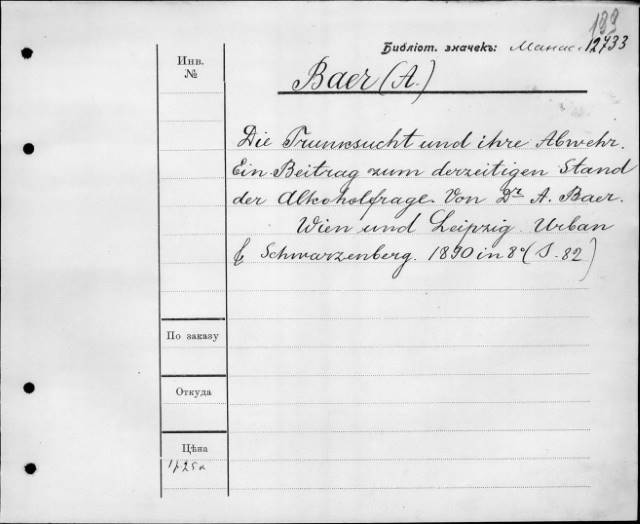 133
Библіот. значекъ: Манас. 12733
Инв.
№
Baer (A.)
Die Trunksucht und ihre Abwehr.
Ein Beitrag zum derzeitigen Stand
der Alkoholfrage. Von Dr A. Baer.
Wien und Leipzig. Urban
& Schwarzenberg. 1890 in 8º (S. 82)
По заказу
Откуда
Цѣна